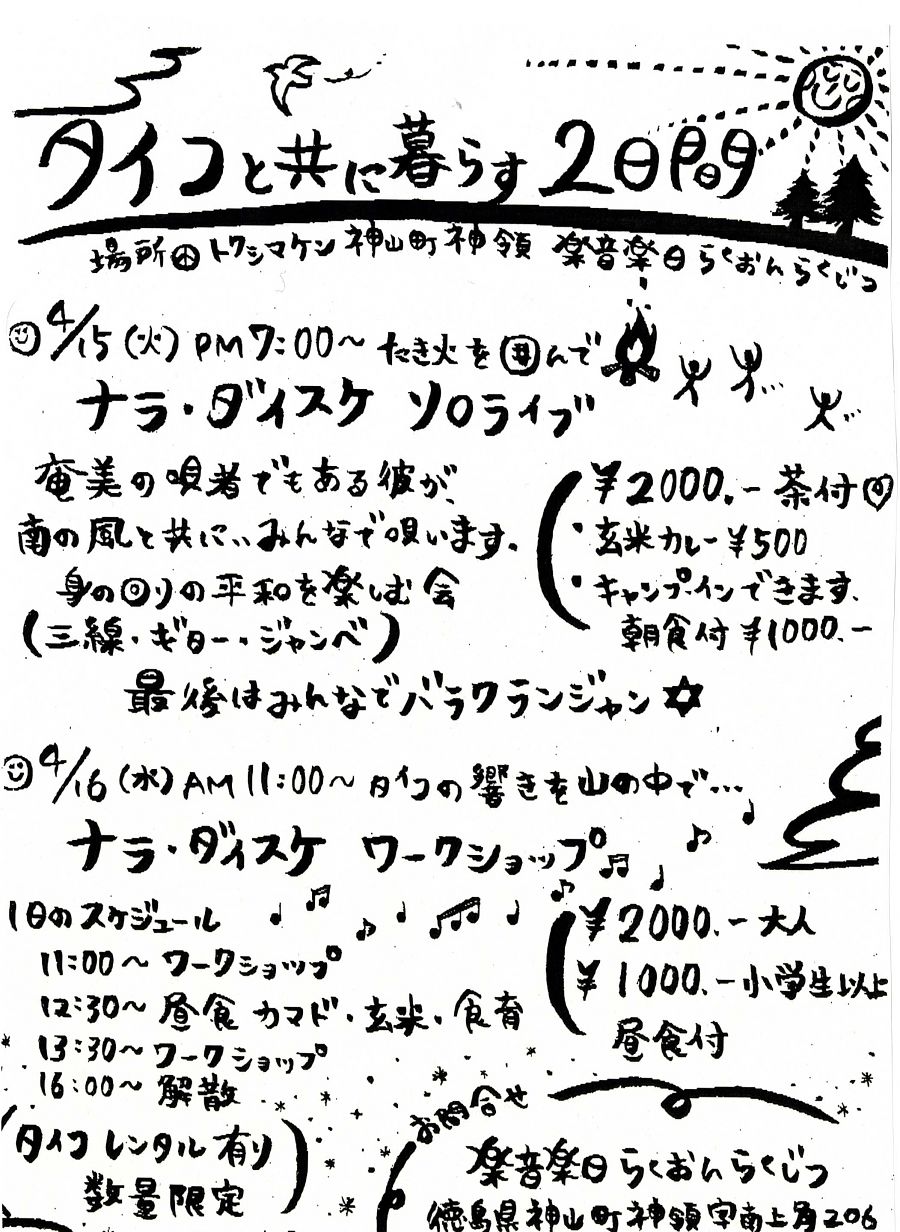 タイコと共に暮らす2日間
場所 トクシマケン 神山町神領 楽音楽日 らくおんらくじつ
4/15(火) PM7:00〜 たき火を囲んで
ナラ・ダイスケ ソロライブ
奄美の唄者でもある彼が、
南の風と共に、みんなで唄います。
身の回りの平和を楽しむ会
(三線・ギター・ジャンベ)
¥2000.- 茶付
・玄米カレー ¥500
・キャンプインできます、
朝食付 ¥1000.-
最後はみんなでバラクランジャン
4/16(水) AM11:00〜 タイコの響きを山の中で…
ナラ・ダイスケ ワークショップ
1日のスケジュール
11:00〜 ワークショップ
12:30〜 昼食 カマド・玄米・食育
13:30〜 ワークショップ
16:00〜 解散
(タイコ レンタル 有り
数量限定)
¥2000.- 大人
¥1000.- 小学生以上
昼食付
お問合せ
楽音楽日 らくおんらくじつ
徳島県神山町神領字南上角206